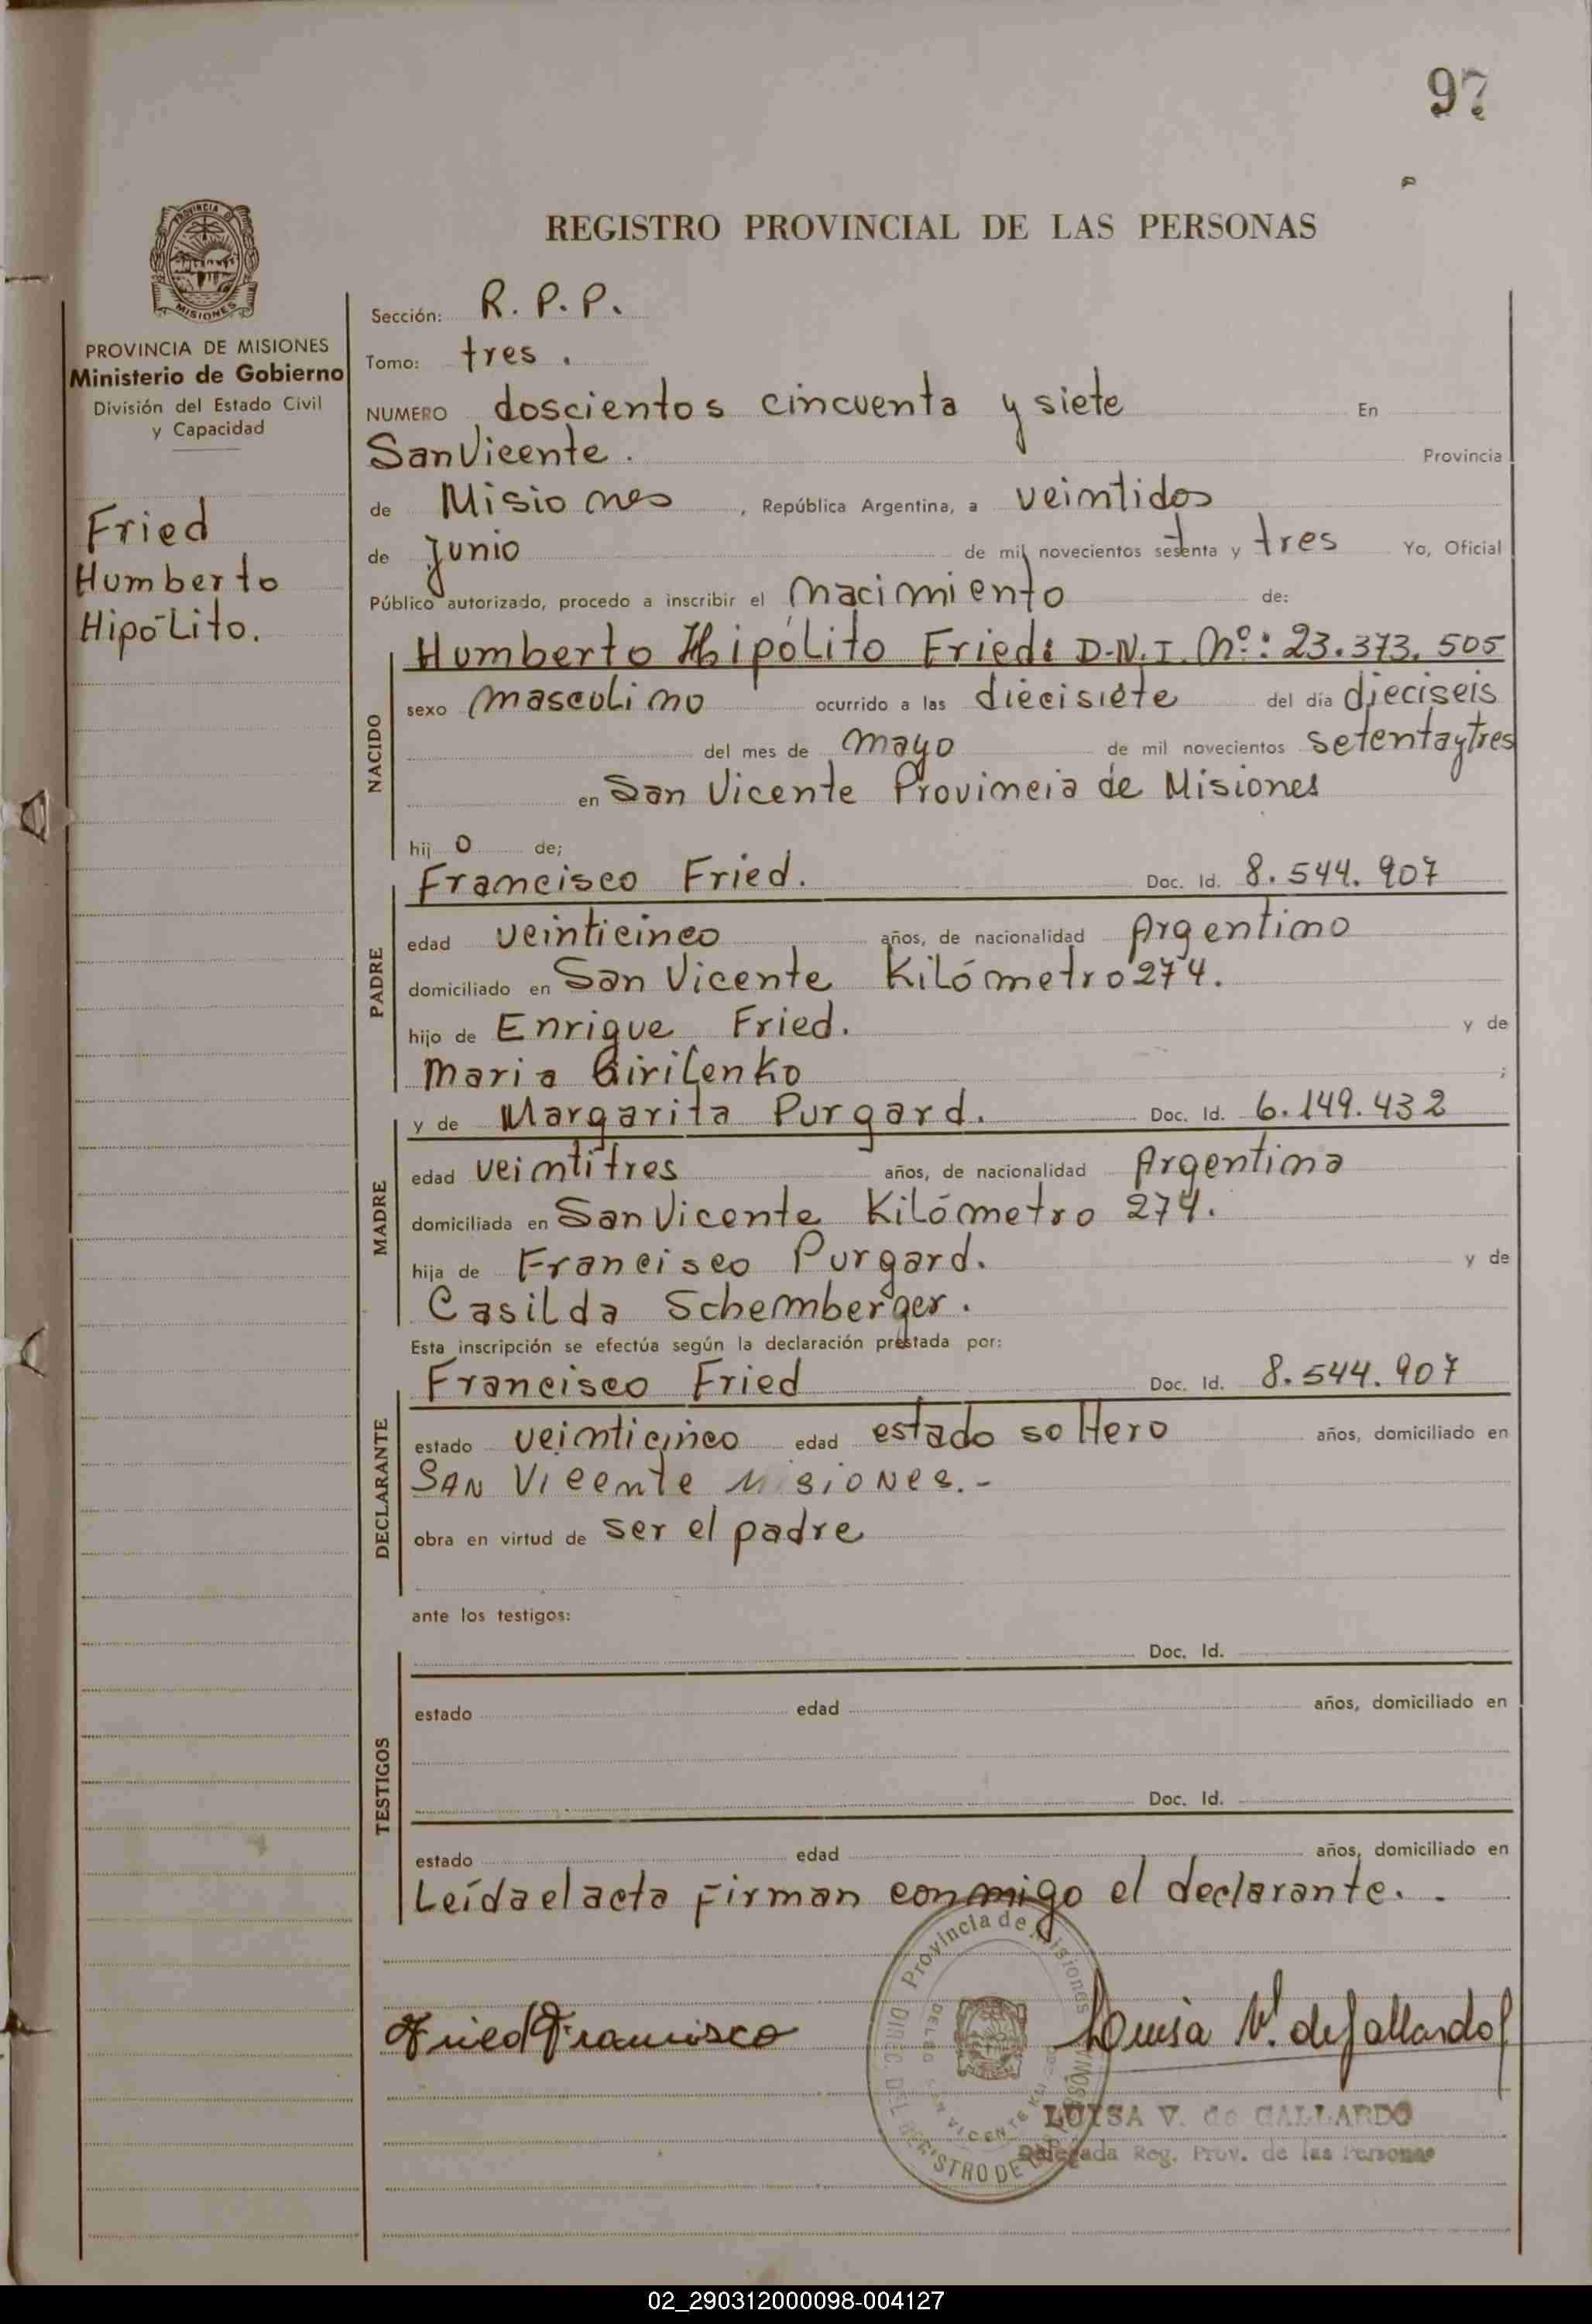 97
REGISTRO PROVINCIAL DE LAS PERSONAS
PROVINCIA DE MISIONES
PROVINCIA DE MISIONES
Ministerio de Gobierno
División del Estado Civil
y Capacidad
Fried
Humberto
Hipólito.
Sección: R. P. P.
Tomo: tres .
NUMERO doscientos cincuenta y siete En
San Vicente . Provincia
de Misiones , República Argentina, a veintidos
de Junio de mil novecientos setenta y tres Yo, Oficial
Público autorizado, procedo a inscribir el nacimiento de:
NACIDO
Humberto Hipólito Fried: D.N.I. Nº: 23.373.505
sexo masculino ocurrido a las diecisiete del día dieciseis
del mes de mayo de mil novecientos setenta y tres
en San Vicente Provincia de Misiones
hij o de;
PADRE
Francisco Fried. Doc. Id. 8.544.907
edad veinticinco años, de nacionalidad Argentino
domiciliado en San Vicente Kilómetro 274.
hijo de Enrique Fried. y de
Maria Girilenko ;
MADRE
y de Margarita Purgard. Doc. Id. 6.149.432
edad veintitres años, de nacionalidad Argentina
domiciliada en San Vicente Kilómetro 274.
hija de Francisco Purgard. y de
Casilda Schemberger.
Esta inscripción se efectúa según la declaración prestada por:
DECLARANTE
Francisco Fried Doc. Id. 8.544.907
estado veinticinco edad estado soltero años, domiciliado en
SAN Vicente Misiones.-
obra en virtud de ser el padre
ante los testigos:
TESTIGOS
Doc. Id.
estado edad años, domiciliado en
Doc. Id.
estado edad años, domiciliado en
Leída el acta firman conmigo el declarante. .
Fried Francisco
Luisa V. de Gallardo
Provincia de Misiones
DIREC. DEL REGISTRO DE LAS PERSONAS
LUISA V. de GALLARDO
Delegada Reg. Prov. de las Personas
02_290312000098-004127